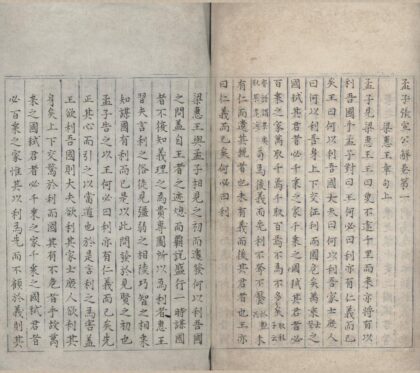 孟子張宣公解卷第一
梁惠王章句上
孟子見梁惠王王曰叟不遠千里而來亦將有以
利吾國乎孟子對曰王何必曰利亦有仁義而已
矣王曰何以利吾國大夫曰何以利吾家士庶人
曰何以利吾身上下交征利而國危矣萬乘之國
弑其君者必千乘之家千乘之國弑其君者必
百乘之家萬取千焉千取百焉不為不多矣
苟為後義而先利不奪不饜未
有仁而遺其親者也未有義而後其君者也王亦
曰仁義而已矣何必曰利
梁惠王與孟子相見之初而遽發何以利吾國
之問蓋自王者之迹熄而霸說盛行一時謀國
者不復知義理之為貴專圖所以為利者惠王
習夫言利之俗徒見強弱之相陵巧智之相
知謀國有利而已是以此問發於見賢之初也
孟子告之以何必曰利亦有仁義而已矣先
正其心而引之以當道也於是言利之為害蓋
王欲利吾國則大夫欲利其家士庶人欲利其
身矣上下交騖於利而國其有不危者乎故萬
乘之國弑君者必千乘之家千乘之國弑君者
必百乘之家惟其以利為先而不顧於義則其